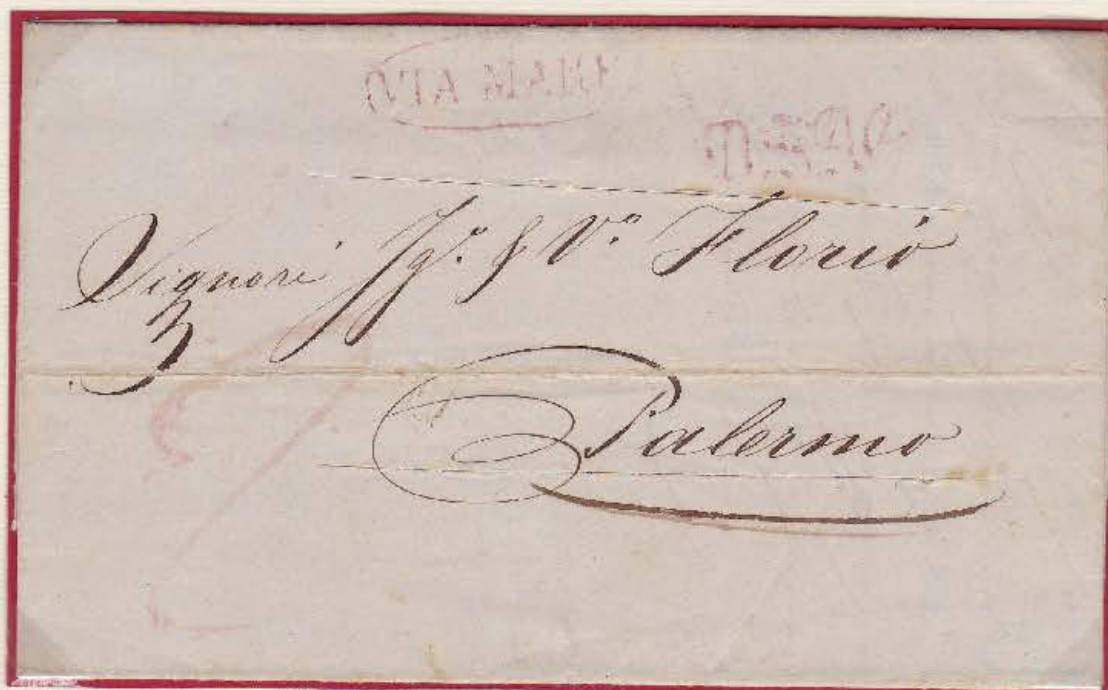 VIA MARE
Signori Ig.º & V.º Florio
Palermo